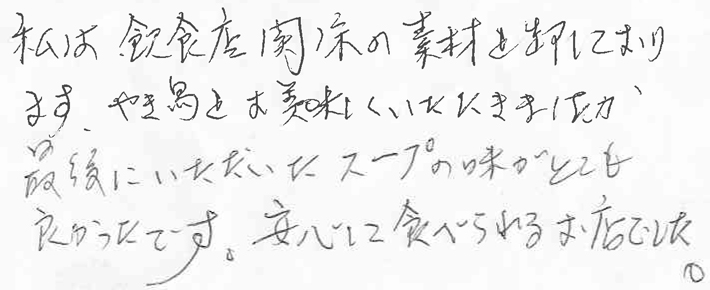 私は飲食店関係の素材を卸しており
ます、やき鳥とお美味しくいただきましたが
最後にいただいたスープの味がとても
良かったです。安心して食べられるお店でした
。